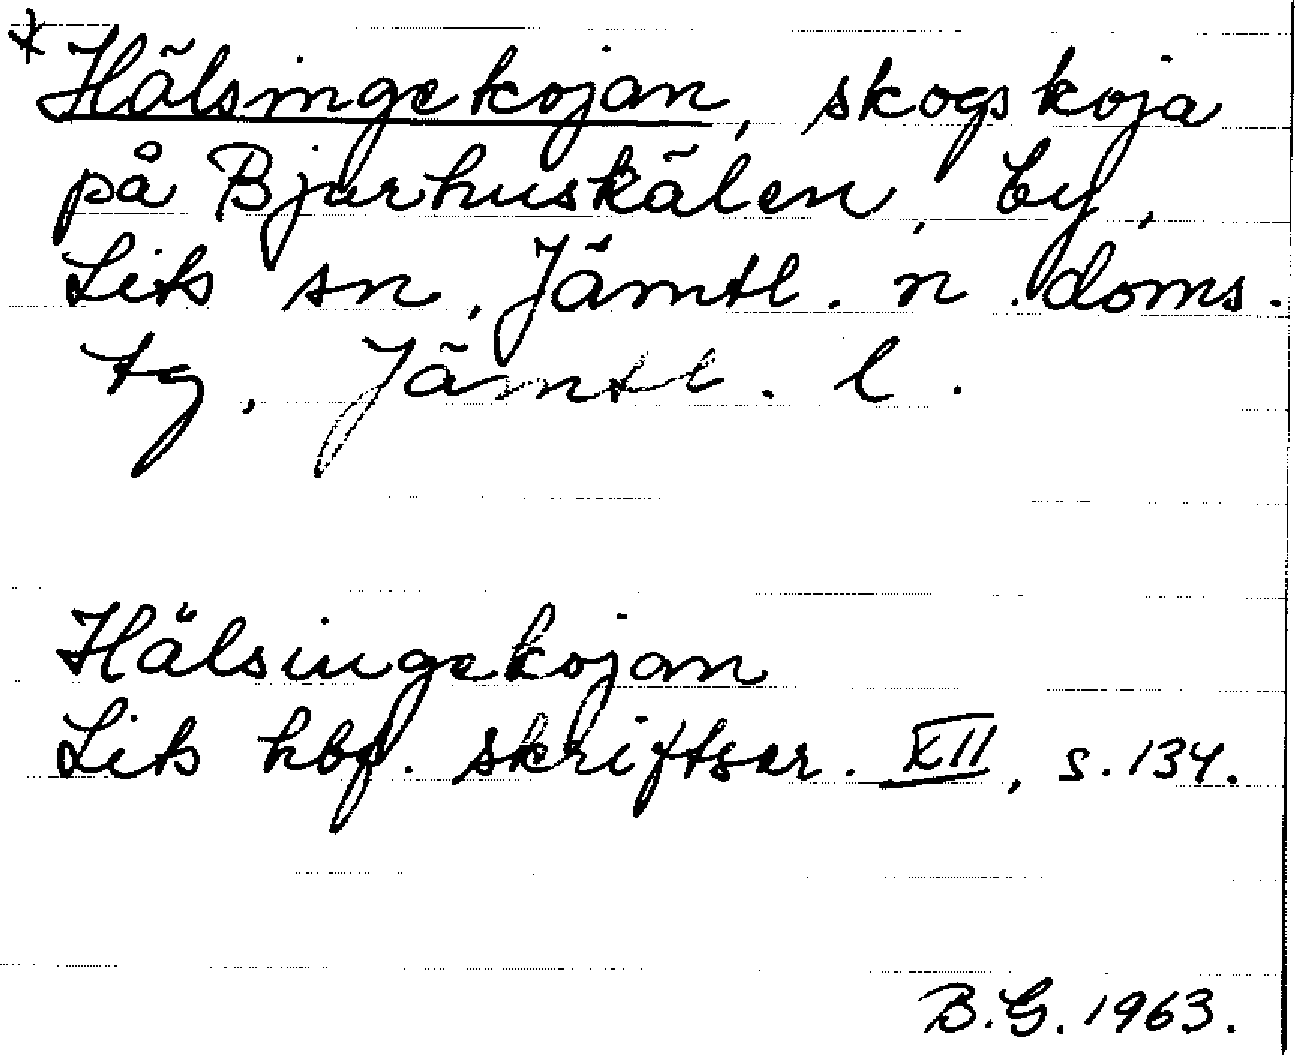 * Hälsingekojan, skogskoja
på Bjurhuskälen, by,
Lits sn, Jämtl. n. doms.
tg, Jämtl. l.
Hälsingekojan
Lits hbf. skriftser. XII, s. 134.
B.G. 1963.